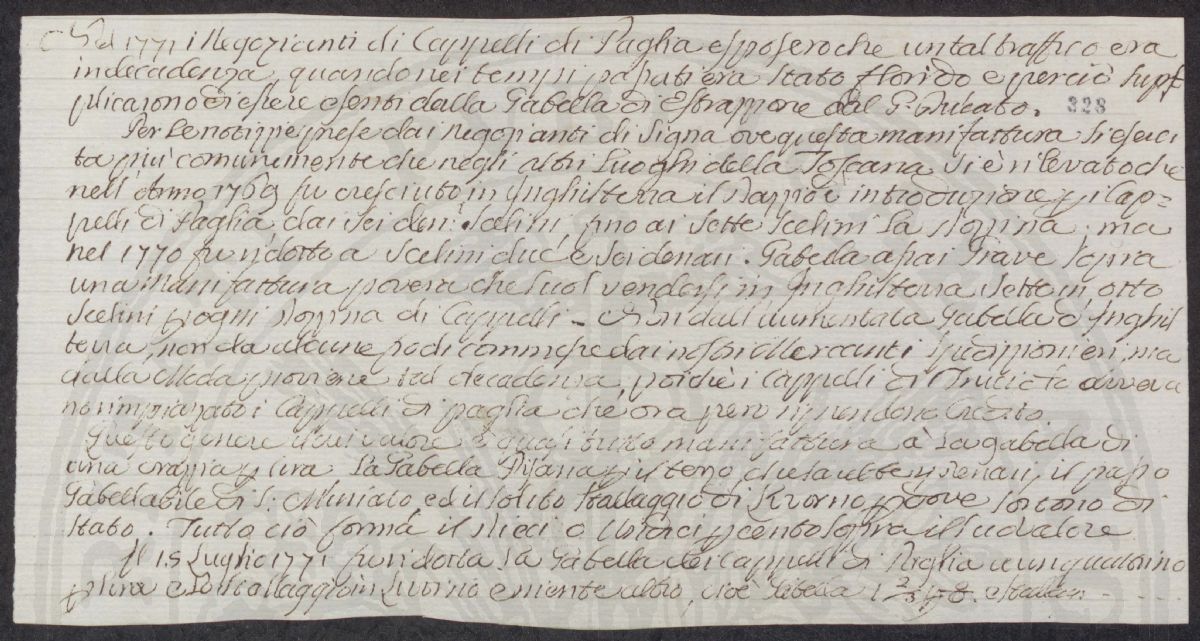 Nel 1771 i Negozianti di Cappelli di Paglia esposero che un tal traffico era
in decadenza, quando nei tempi passati era stato florido e perciò sup=
plicarono di essere esenti dalla Gabella di Estrazzione dal G. Ducato. 328
Per le notizie prese dai negozianti di Signa ove questa manifattura si eserci
ta più comunemente che negli altri Luoghi della Toscana si è rilevato che
nell' Anno 1769 fu cresciuto in Inghilterra il Dazzio introduzione p i Cap=
pelli di Paglia, dai sei den: Scelini, fino ai sette Scelini la Dozzina, ma
nel 1770 fu ridotto a Scelini due, e sei denari. Gabella assai Grave sopra
una Manifattura povera che suol vendersi in Inghilterra sette in otto
Scelini p ogni Dozzina di Cappelli. aumentata Gabella d'Inghil
terra, non da alcune frodi commesse dai nostri Mercanti Spedizzionieri, ma
dalla Moda proviene tal decadenza, poiche i Cappelli di aveva
no rimpiazzato i Cappelli di paglia che ora però riprendono Credito.
Questo genere il cui valore è quasi tutto manifattura à la gabella di
una crazia p lira La Gabella Pisana il passo
Gabellabile di S: Miniato ed il solito Stallaggio di Livorno p dove sortono di
Stato. Tutto ciò forma il Dieci o Undici p cento sopra il suo valore
Il 15 Luglio 1771 fu ridotta la Gabella dei Cappelli di Paglia a un quattrino
p lira e Stallaggio in Livorno e niente altro, cioè Gabella 1 2/3